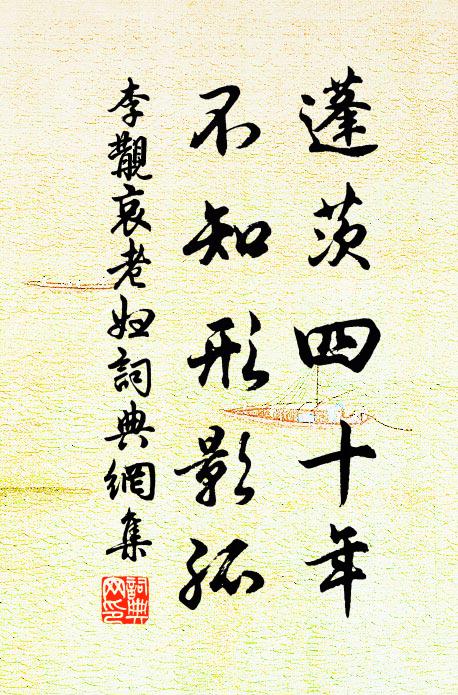 蓬茨四十年
不知形影孤
李觀哀老妪詞典網集
詞典网印